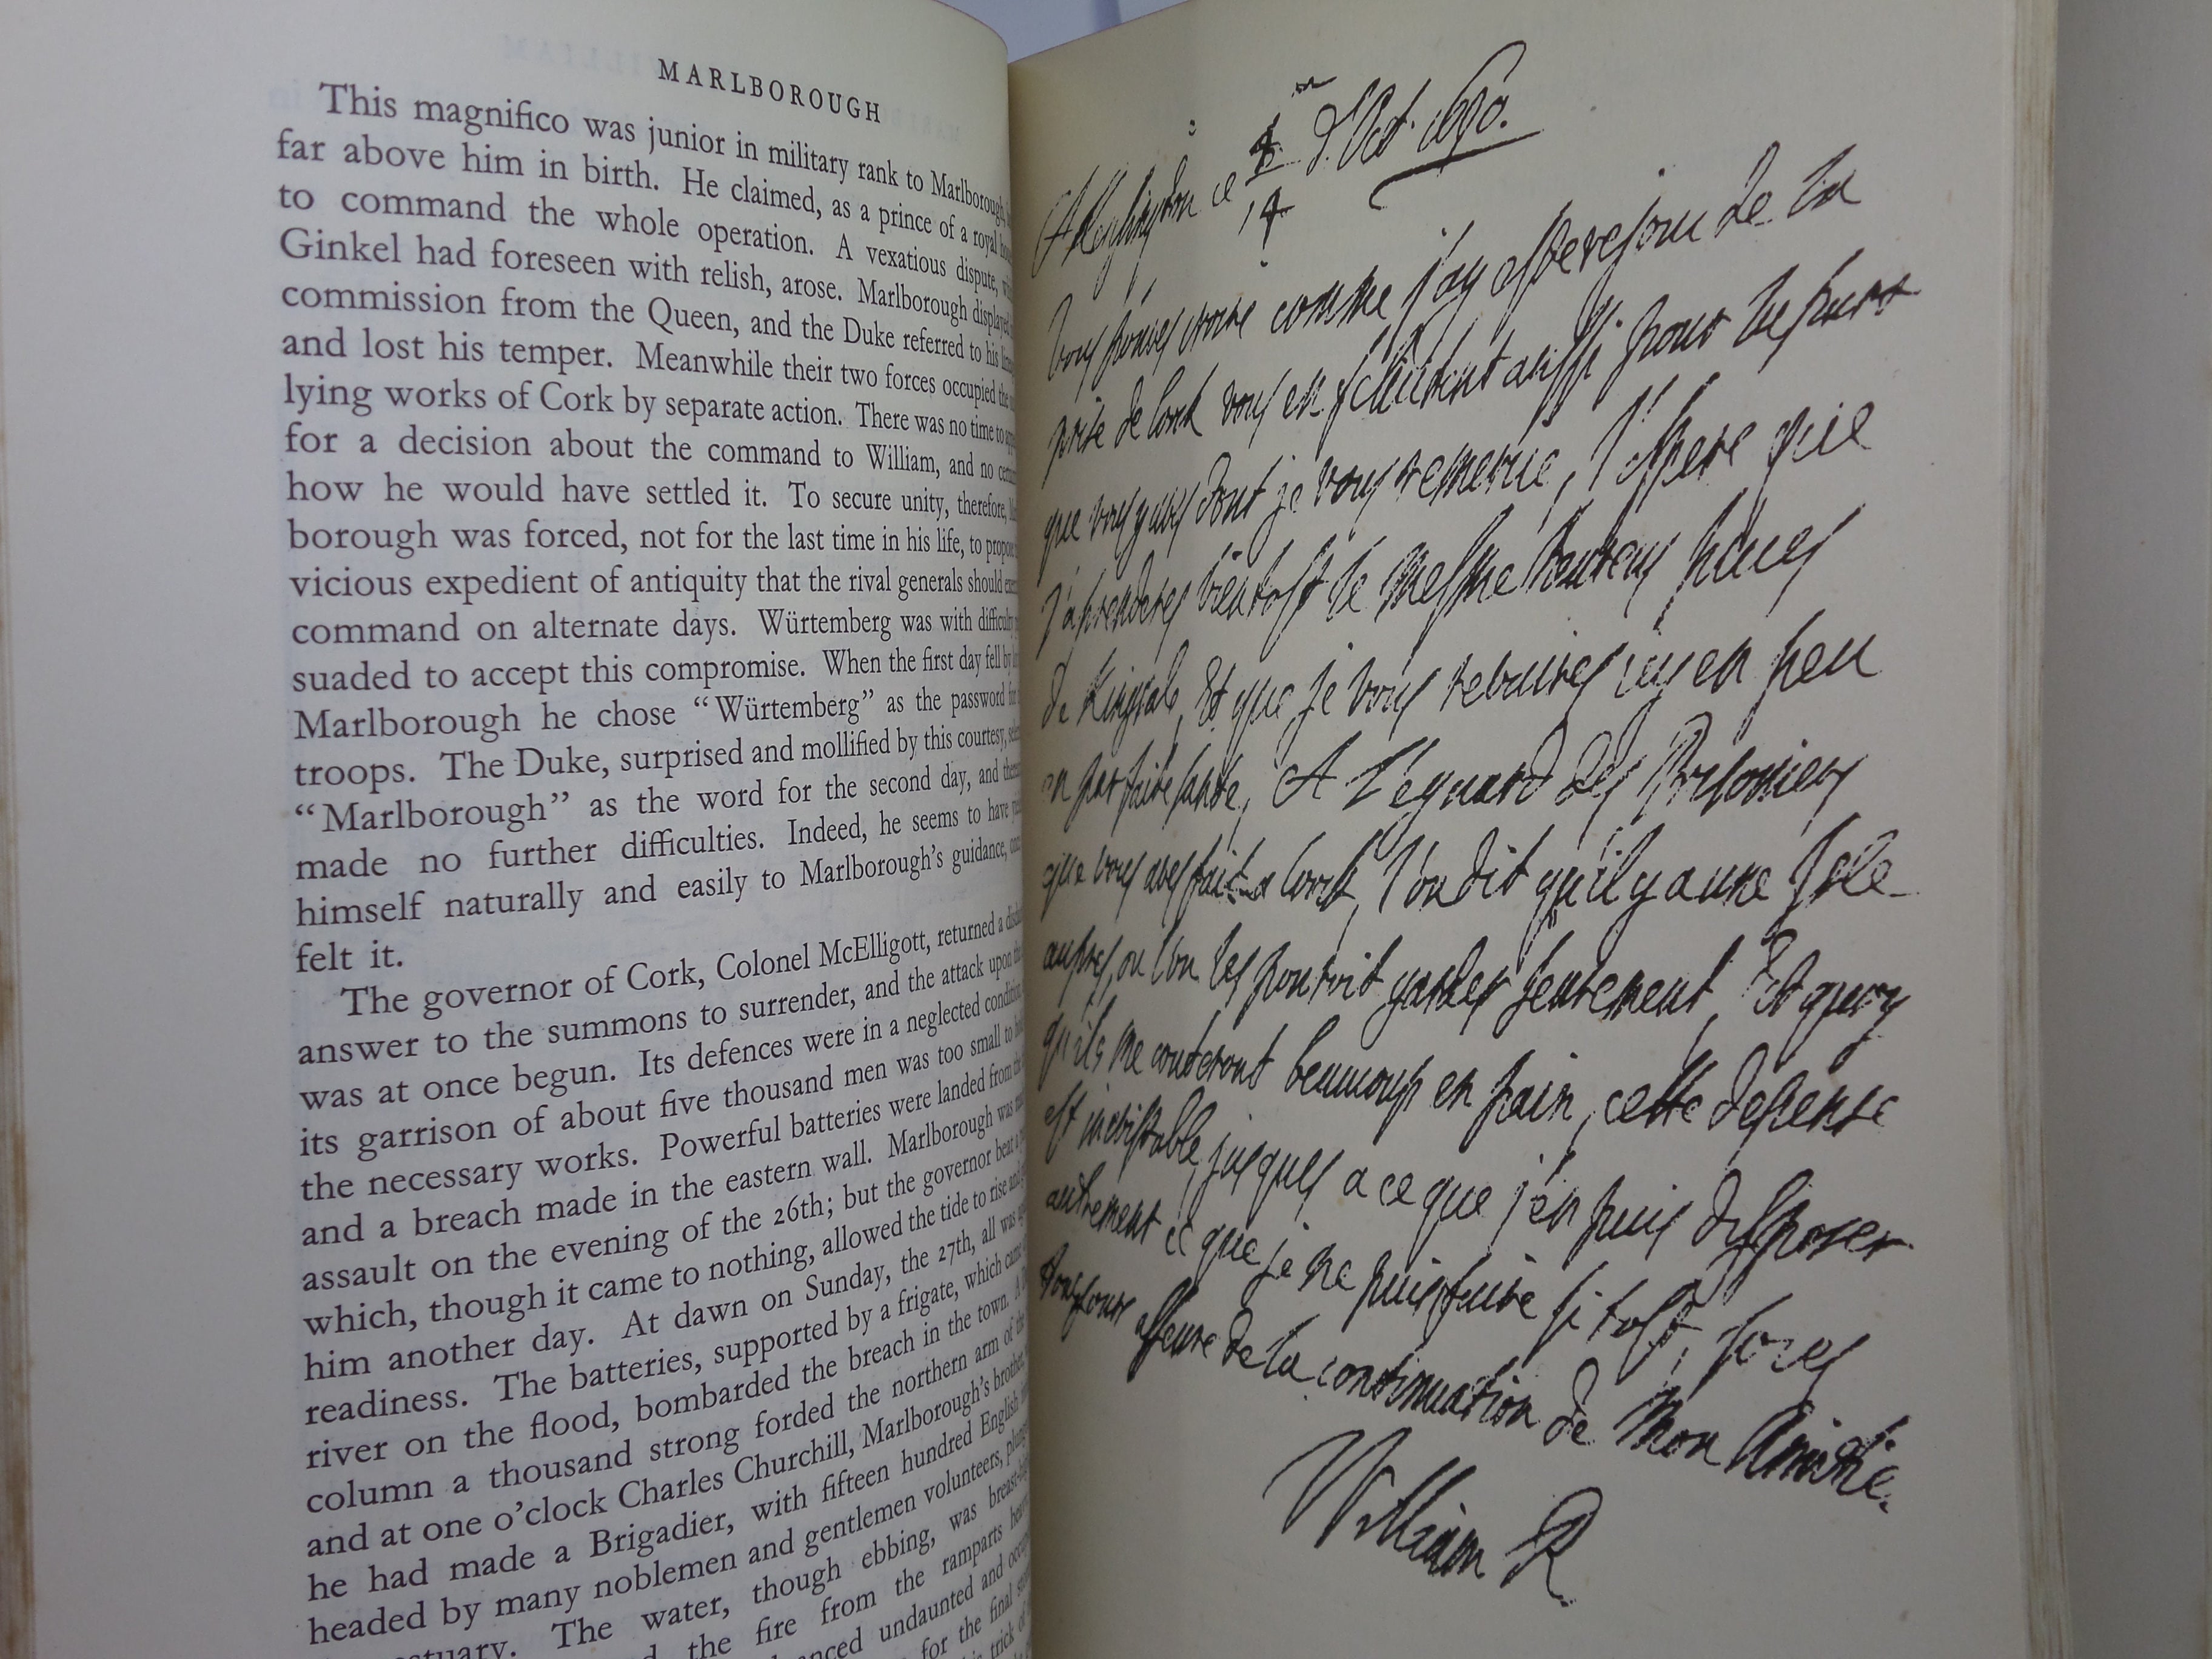 MARLBOROUGH
This magnifico was junior in military rank to Marlborough,
far above him in birth. He claimed, as a prince of a royal
to command the whole operation. A vexatious dispute,
Ginkel had foreseen with relish, arose. Marlborough displayed
commission from the Queen, and the Duke referred to his
and lost his temper. Meanwhile their two forces occupied the
lying works of Cork by separate action. There was no time to
for a decision about the command to William, and no
how he would have settled it. To secure unity, therefore,
borough was forced, not for the last time in his life, to propose
vicious expedient of antiquity that the rival generals should
command on alternate days. Würtemberg was with difficulty
suaded to accept this compromise. When the first day fell by
Marlborough he chose “Würtemberg” as the password
troops. The Duke, surprised and mollified by this courtesy,
“Marlborough” as the word for the second day, and
made no further difficulties. Indeed, he seems to have
himself naturally and easily to Marlborough’s guidance,
felt it.
The governor of Cork, Colonel McElligott, returned a
answer to the summons to surrender, and the attack upon
was at once begun. Its defences were in a neglected condition,
its garrison of about five thousand men was too small to
the necessary works. Powerful batteries were landed from
and a breach made in the eastern wall. Marlborough was
assault on the evening of the 26th; but the governor beat a
which, though it came to nothing, allowed the tide to rise and
him another day. At dawn on Sunday, the 27th, all was
readiness. The batteries, supported by a frigate, which came
river on the flood, bombarded the breach in the town. A
column a thousand strong forded the northern arm of the
and at one o’clock Charles Churchill, Marlborough’s brother,
he had made a Brigadier, with fifteen hundred English
headed by many noblemen and gentlemen volunteers,
estuary. The water, though ebbing, was
the fire from the ramparts
undaunted and
for the final
trick of
A Kensington ce 4/14 d'Oct. 1690.
Vous pouves croire comme j'ay este rejoui de la
prise de Cork vous en felicitant aussi pour la part
que vous y aves dont je vous remercie, J'espere que
J'aprenderes bientost le mesme heureus succes
de Kingsale, Et que je vous rebaires icy en peu
en parfaite sante, A l'eguard des Prisoniers
que vous aves fait a Cork, l'on dit qu'il y a une Isle
aupres, ou l'on les pouroit garder seurement, Et quoy
qu'ils me couteront beaucoup en pain, cette depense
est inevitable, jusques a ce que j'en puis disposer
autrement ce que je ne puis faire si tost, soyes
tousjours asseure de la continuation de Mon Amitie.
William R